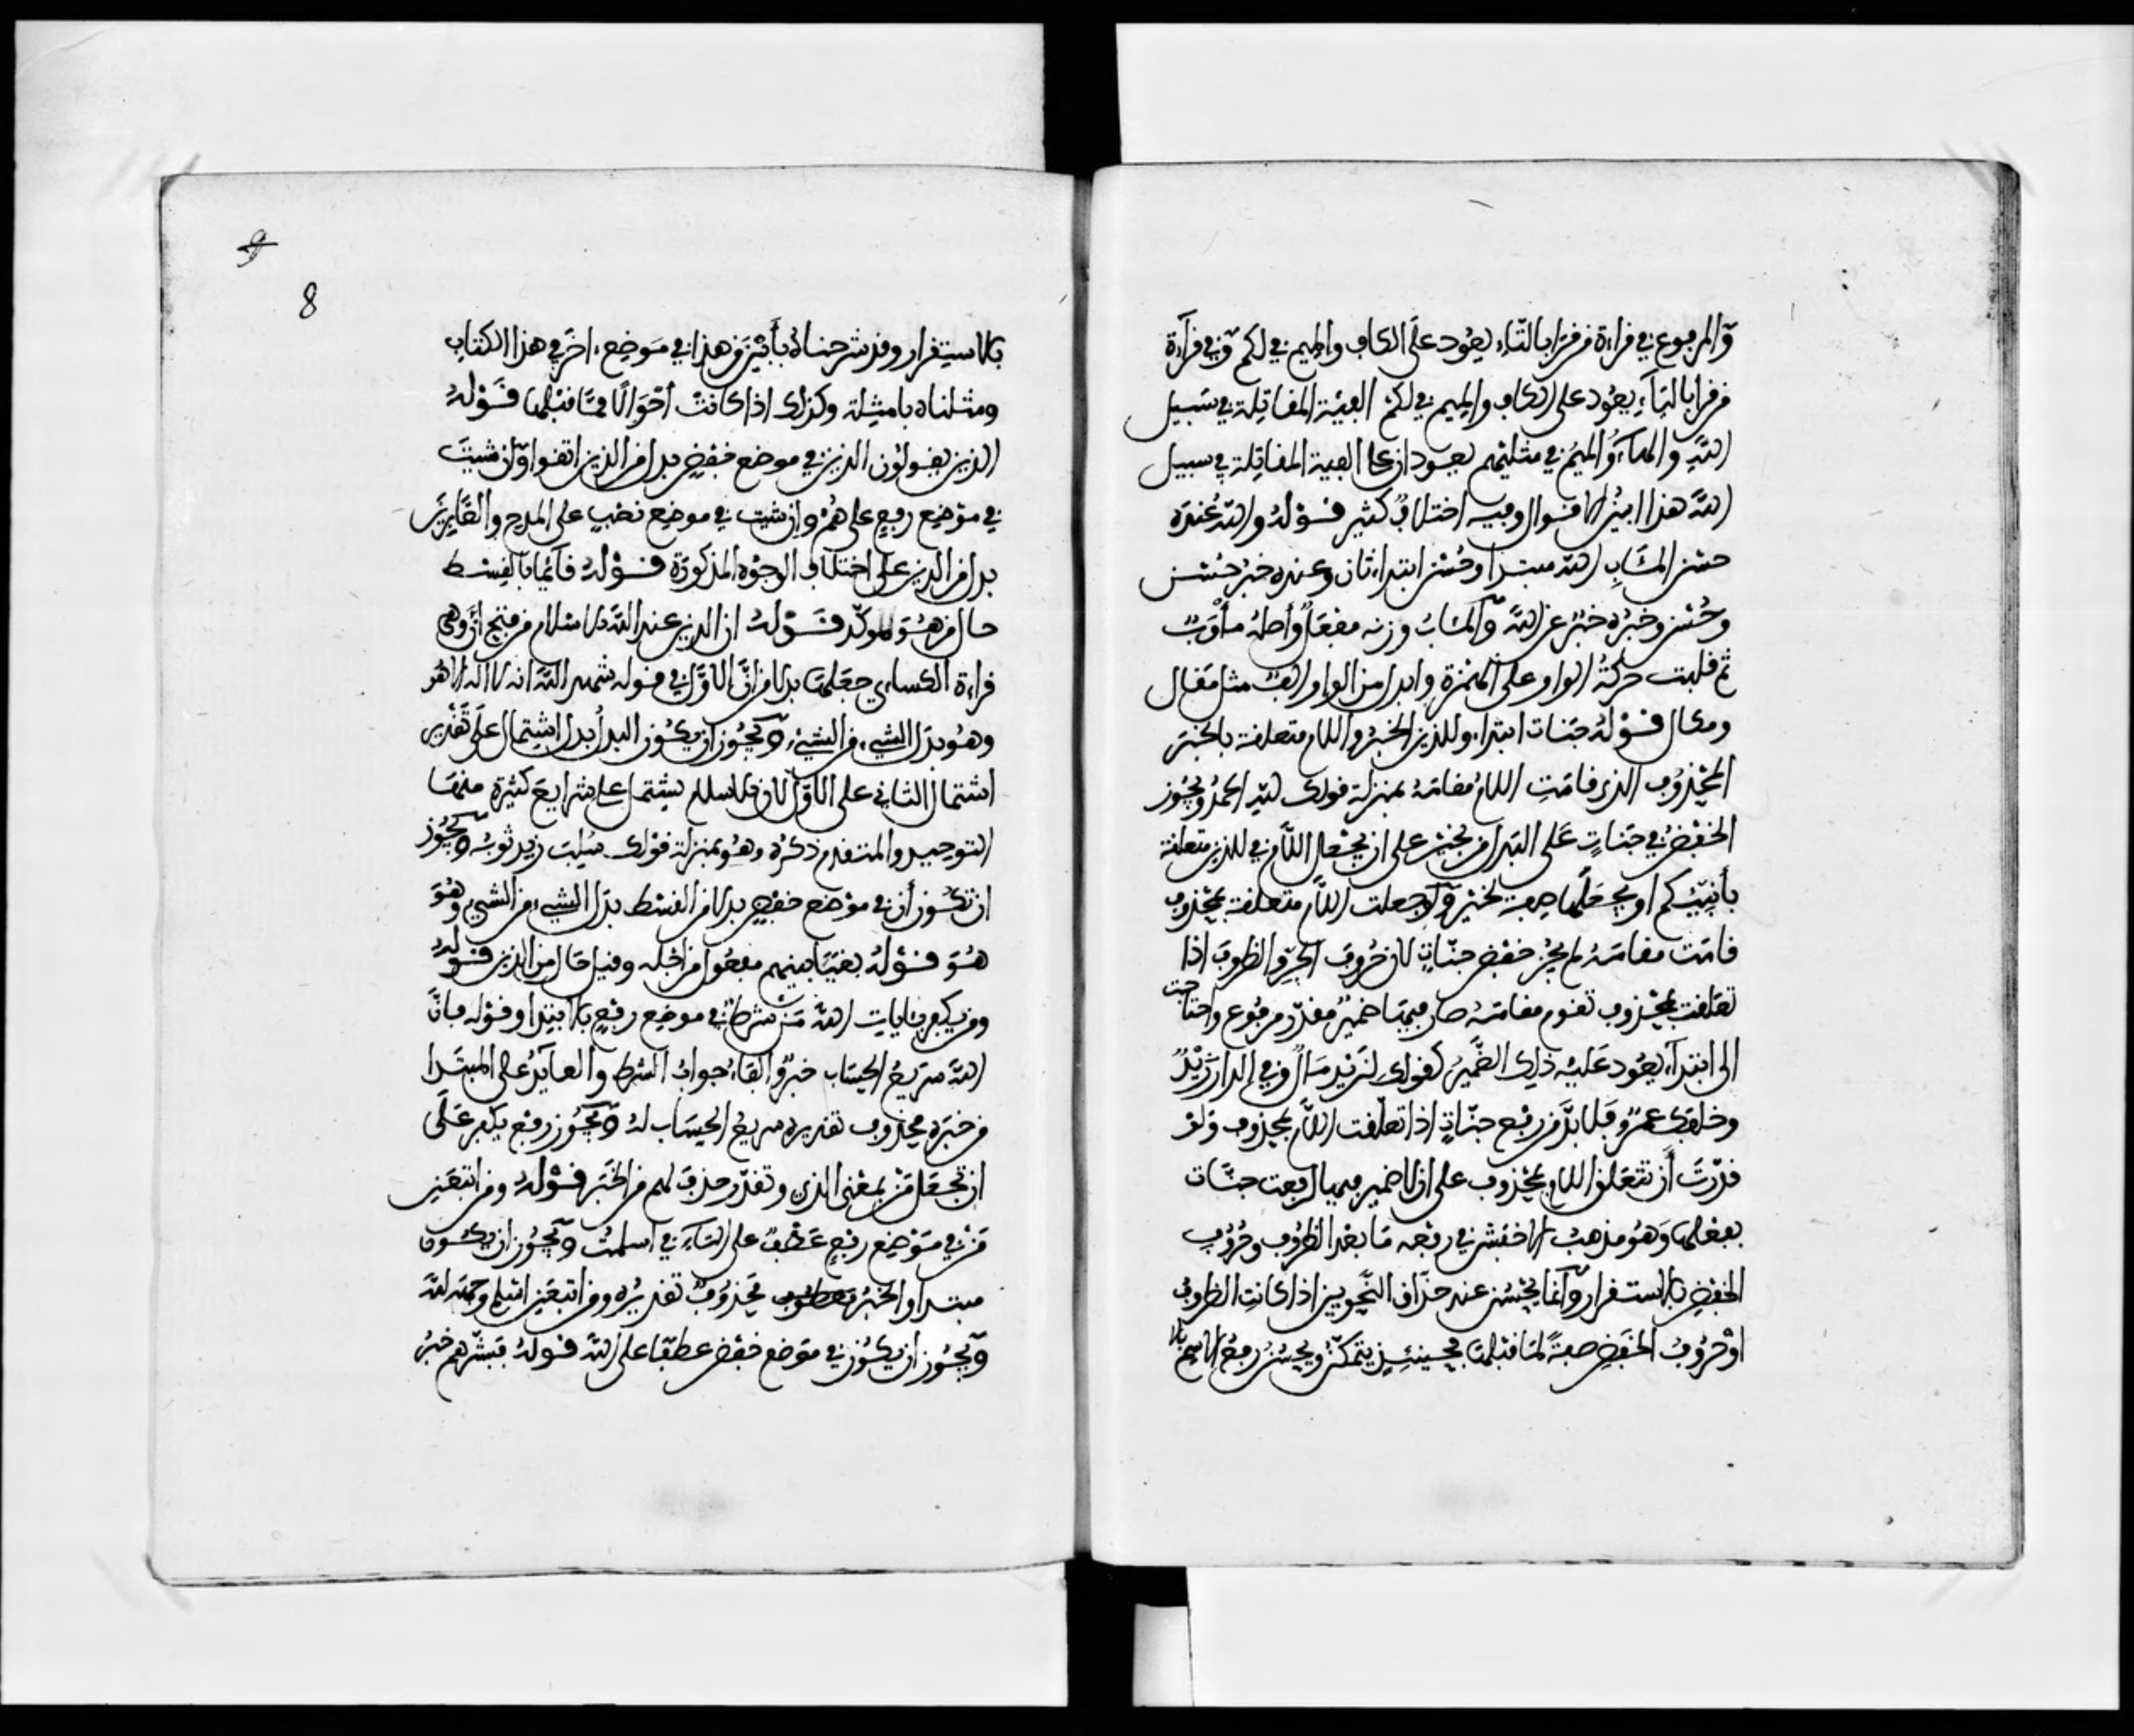 والمرفوع في قراءة من قرأ بالتاء يعود على الكاف والميم في لكم وفي قراءة
من قرأ بالياء يعود على الكاف والميم في لكم الفئة المقاتلة في سبيل
الله والهاء والميم في مثليهم يعودان على الفية المقاتلة في سبيل
الله هذا ابين الاقوال وفيه اختلاف كثير قوله والله عنده
حسن المئاب الله مبتدا وحسن ابتداء ثان وعنده خبر حسن
وحسن وخبره خبر عن الله والمئاب وزنه مفعل وأصله مأوب
ثم قلبت حركة الواو على الهمزة وابدل من الواو الف مثل مقال
ومكال قوله جنات ابتداء وللذين الخبر واللام متعلقة بالخبر
المحذوف الذي قامت اللام مقامه بمنزلة قولك لله الحمد ويجوز
الخفض في جنات على البدل من بخير على ان تجعل اللام في للذين متعلقة
بأنبئكم او تجعلها صفة لخير ولو جعلت اللام متعلقة بمحذوف
قامت مقامه لم يجز خفض جنات لان حروف الجر والظروف اذا
تعلقت بمحذوف تقوم مقامه صار فيها ضمير مقدر مرفوع واحتاجت
الى ابتداء يعود عليه ذلك الضمير كقولك لزيد مال وفي الدار زيد
وخلفك عمرو فلا بد من رفع جنات اذا تعلقت اللام بمحذوف ولو
قدرت أن تتعلق اللام بمحذوف على ان لا ضمير فيها لرفعت جنات
بفعلها وهو مذهب الاخفش في رفعه ما بعد الظروف وحروف
الخفض بالاستقرار وانما يحسن عند حذاق النحويين اذا كانت الظروف
او حروف الخفض صفة لما قبلها فحينئذ يتمكن ويحسن رفع الاسم
9
8
بالاستقرار وقد شرحناه بأبين من هذا في موضع اخر في هذا الكتاب
ومثلناه بامثلة وكذلك اذا كانت أحوالا مما قبلها قوله
الذين يقولون الذين في موضع خفض بدل من الذين اتقوا وان شيت
في موضع رفع على هم وان شيت في موضع نصب على المدح والصابرين
بدل من الذين على اختلاف الوجوه المذكورة قوله قائما بالقسط
حال من هو مؤكدة قوله ان الدين عند الله الاسلام من فتح أن وهي
قراءة الكساءي جعلها بدلا من أن الاولى في قوله شهد الله انه لا اله الا هو
وهو بدل الشيء من الشيء ويجوز ان يكون البدل بدل اشتمال على تقدير
اشتمال الثاني على الاول لان الاسلام يشتمل على شرايع كثيرة منها
التوحيد والمتقدم ذكره وهو بمنزلة قولك سلب زيد ثوبه ويجوز
ان تكون أن في موضع خفض بدلا من القسط بدل الشيء من الشيء وهو
هو قوله بغيا بينهم مفعول من اجله وقيل حال من الذين قوله
ومن يكفر بئايات الله من شرط في موضع رفع بالابتدا وقوله فان
الله سريع الحساب خبره والفاء جواب الشرط والعايد على المبتدا
من خبره محذوف تقديره سريع الحساب له ويجوز رفع يكفر على
ان تجعل من بمعنى الذي وتقدر حذف لهم من الخبر قوله ومن اتبعن
من في موضع رفع عطف على التاء في اسلمت ويجوز ان يكون
مبتدا والخبر محذوف تقديره ومن اتبعن اسلم وجهه لله
ويجوز ان يكون في موضع خفض عطفا على الله قوله فبشرهم خبر